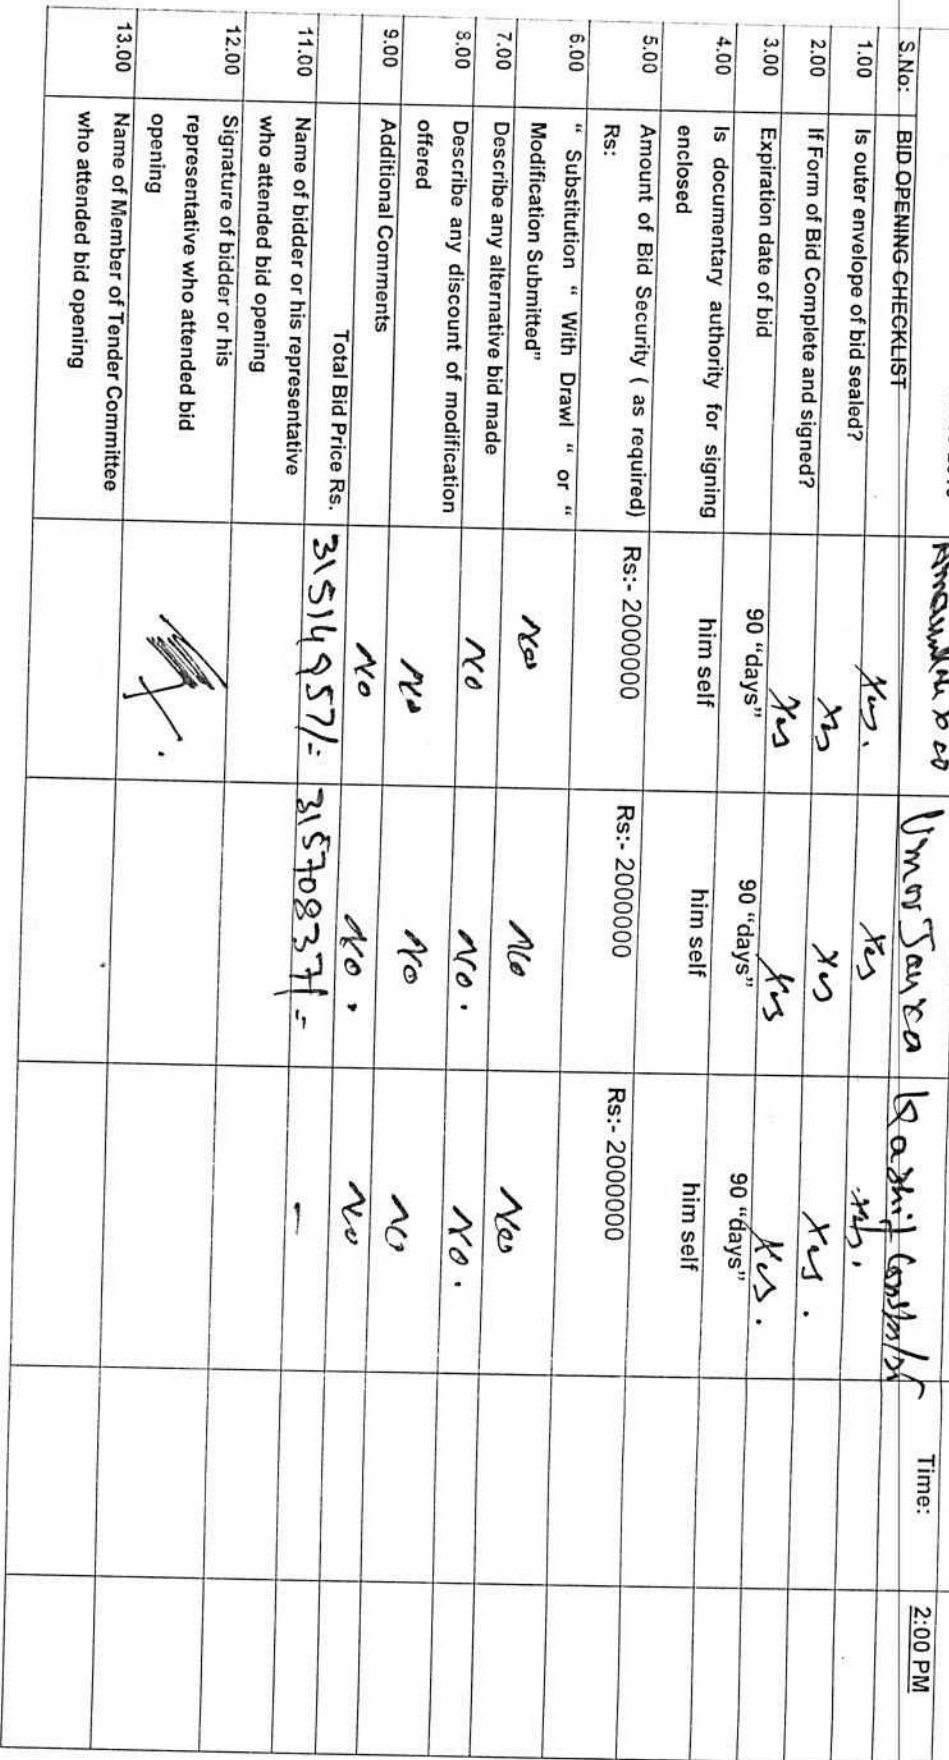 Time: 2:00 PM
S.No: BID OPENING CHECKLIST Umar Kashif
1.00 Is outer envelope of bid sealed? Yes. Yes Yes.
2.00 If Form of Bid Complete and signed? Yes Yes Yes.
3.00 Expiration date of bid Yes Yes Yes.
90 "days" 90 "days" 90 "days"
4.00 Is documentary authority for signing him self him self him self
enclosed
5.00 Amount of Bid Security ( as required) Rs:- 2000000 Rs:- 2000000 Rs:- 2000000
Rs:
6.00 " Substitution " With Drawl " or "
Modification Submitted" No No No
7.00 Describe any alternative bid made No No. No.
8.00 Describe any discount of modification No No No
offered
9.00 Additional Comments No No. No
Total Bid Price Rs. 31514957/= 31570837/= -
11.00 Name of bidder or his representative
who attended bid opening
12.00 Signature of bidder or his
representative who attended bid
opening
13.00 Name of Member of Tender Committee
who attended bid opening